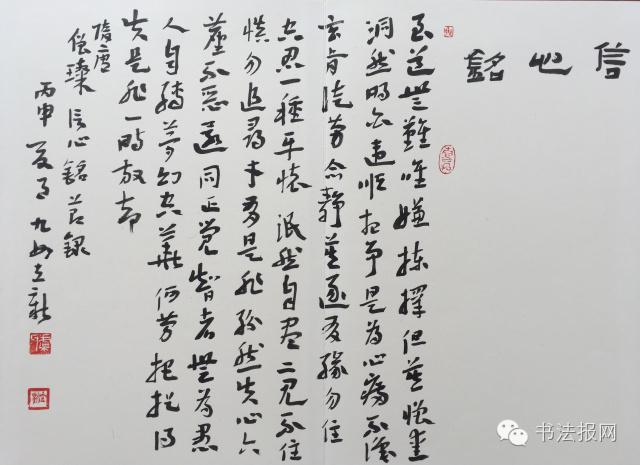 信心銘
至道無難唯嫌揀擇但莫憎愛
洞然明白違順相爭是為心病不識
玄旨徒勞念靜莫逐有緣勿住
空忍一種平懷泯然自盡二見不住
慎勿追尋才有是非紛然失心六
塵不惡還同正覺智者無為愚
人自縛夢幻空華何勞把捉得
失是非一時放却
隋唐
僧璨信心銘節錄
丙申夏月九如立新
书法报网